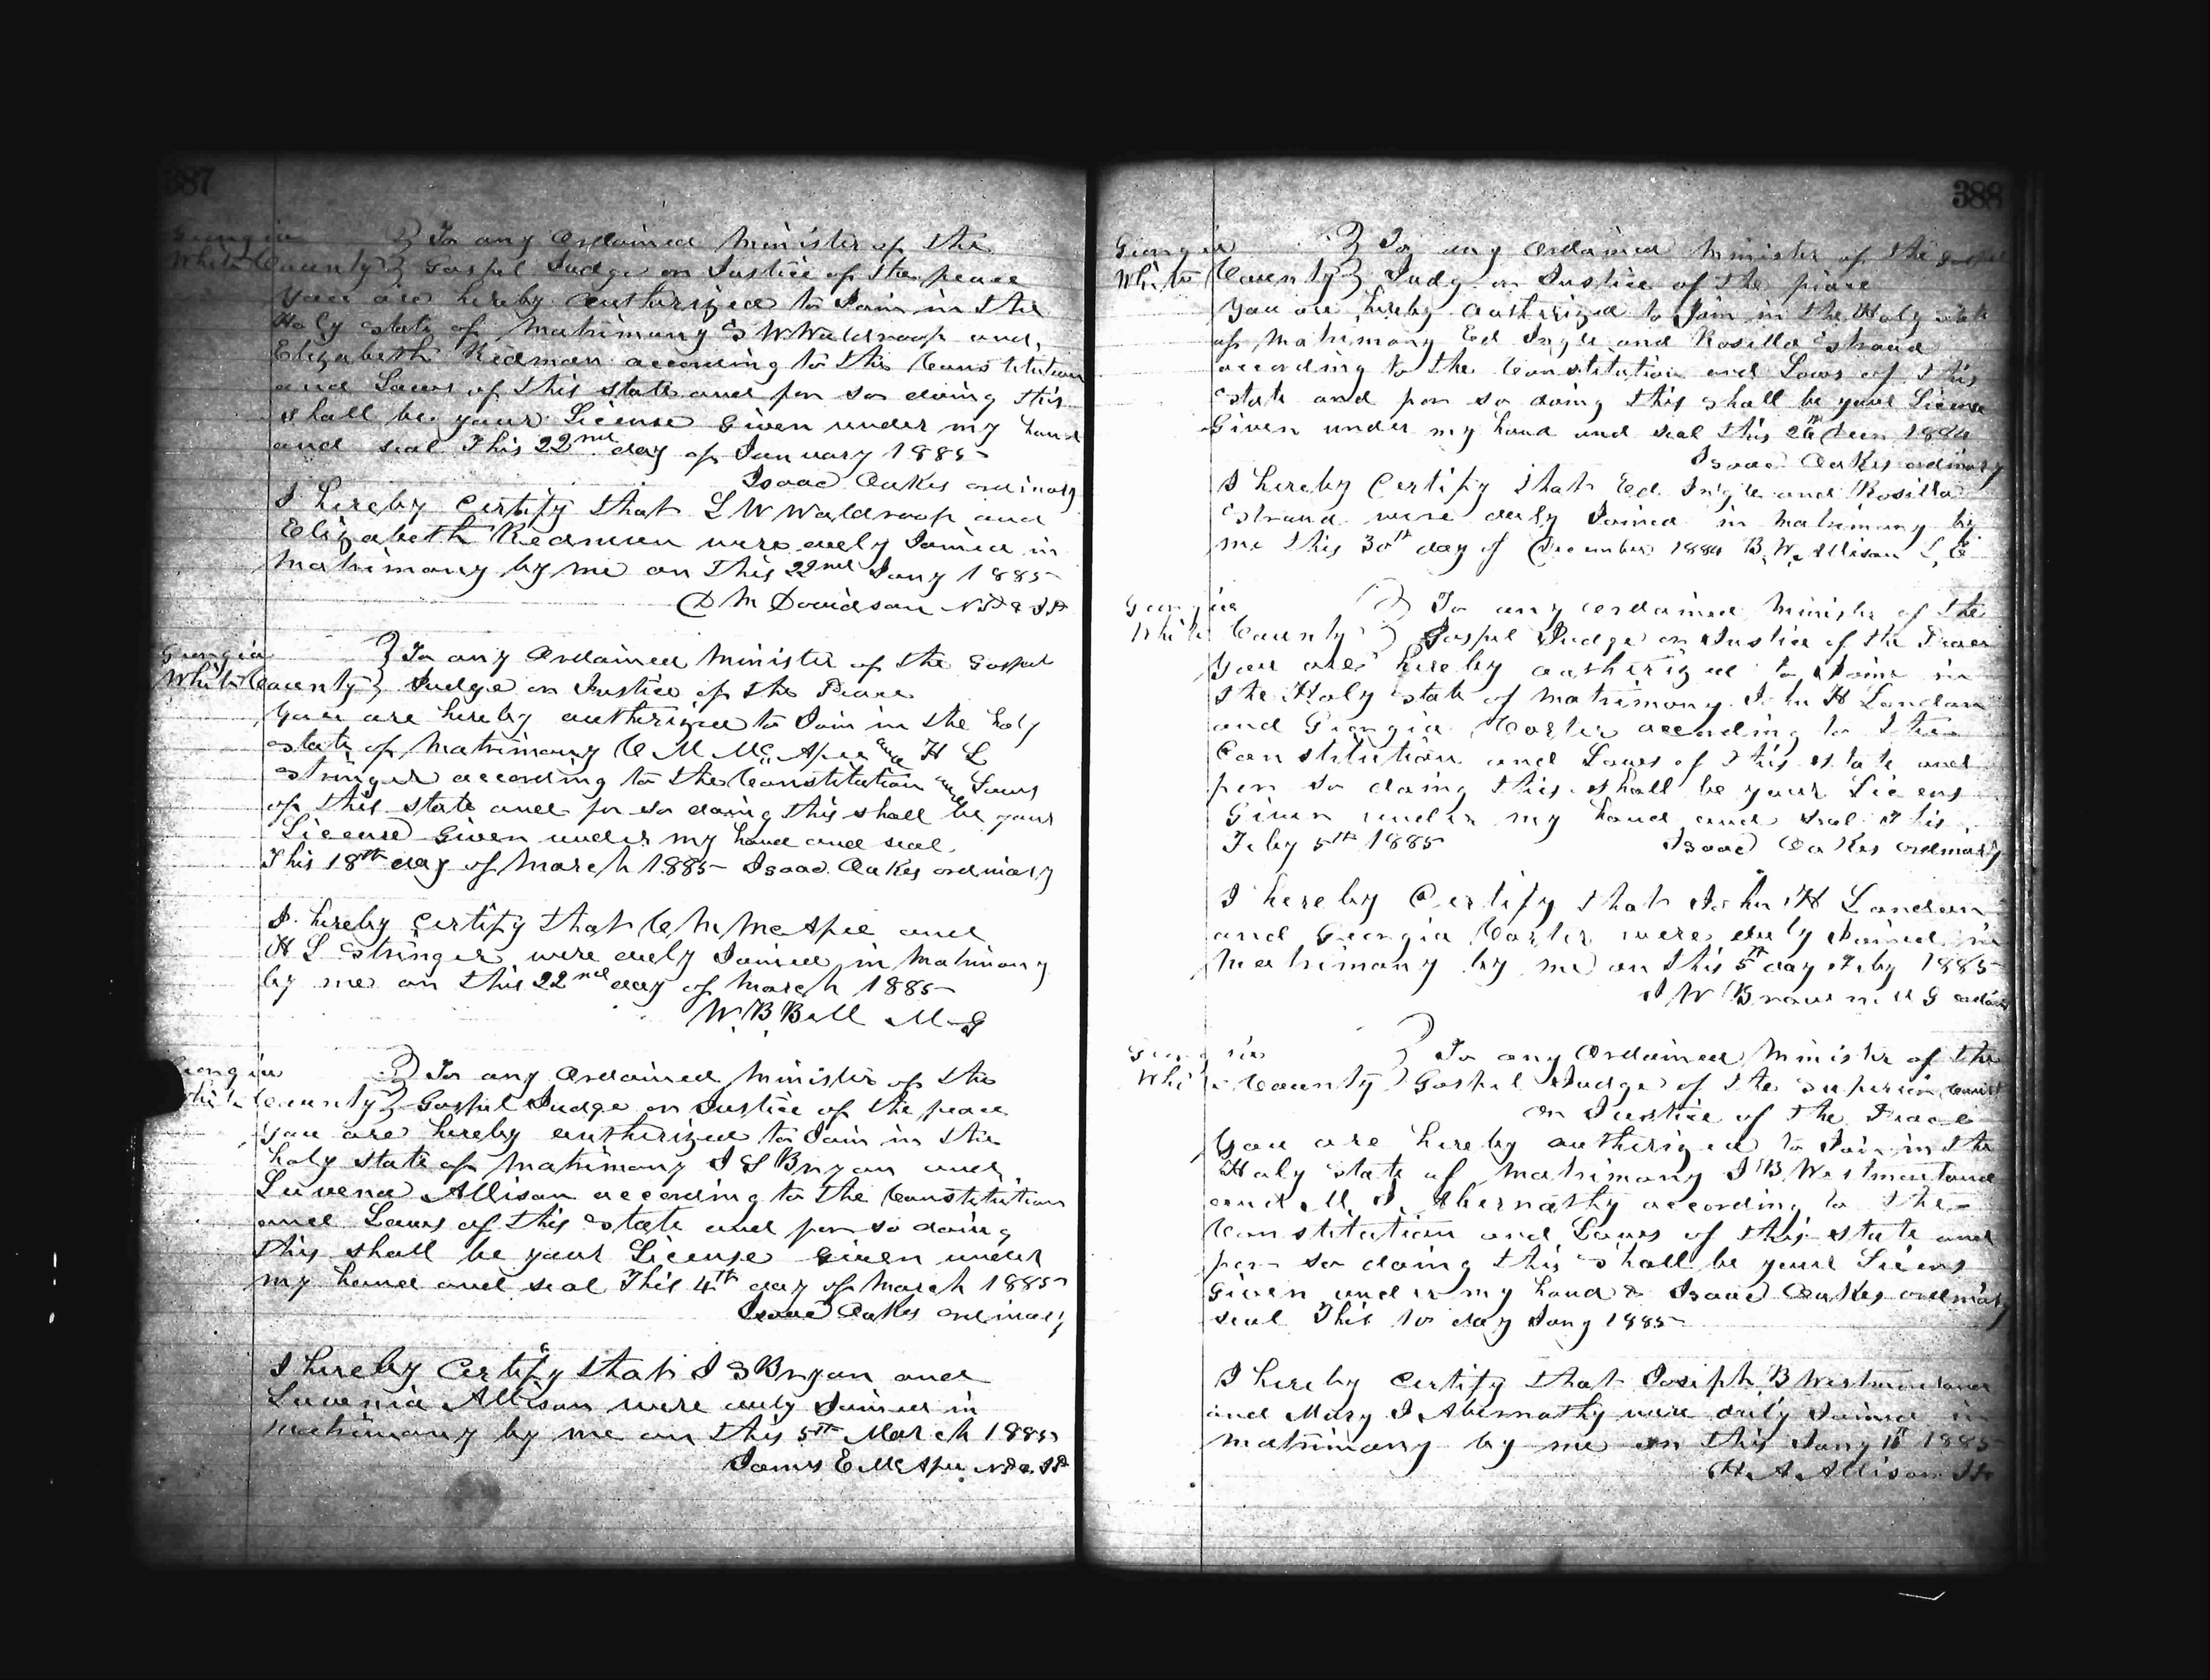 387
Georgia } To any Ordained Minister of the
White County } Gospel Judge or Justice of the peace
You are hereby authorized to Join in the
Holy state of Matrimony S W Waldroop and
Elizabeth Redman according to the Constitution
and Laws of this state and for so doing this
shall be your License Given under my hand
and seal This 22nd day of January 1885
Isaac Oakes ordinary
I hereby Certify that L W Waldroop and
Elizabeth Redmon were duly Joined in
Matrimony by me on this 22nd Jany 1885
D M Davidson NP & JP
Georgia } To any Ordained Minister of the Gospel
White County } Judge or Justice of the Peace
You are hereby authorized to Join in the holy
state of Matrimony C M McAfee and H L
Stringer according to the Constitution and Laws
of this state and for so doing this shall be your
License Given under my hand and seal
This 18th day of March 1885 Isaac Oakes ordinary
I hereby Certify that C M McAfee and
H L Stringer were duly Joined in Matrimony
by me on this 22nd day of March 1885
W B Bell M G
Georgia } To any Ordained Minister of the
White County } Gospel Judge or Justice of the peace
You are hereby authorized to Join in the
holy state of Matrimony J S Bryan and
Luvena Allison according to the Constitution
and Laws of this state and for so doing
this shall be your License Given under
my hand and seal This 4th day of March 1885
Isaac Oakes ordinary
I hereby Certify that J S Bryan and
Luvenia Allison were duly Joined in
matrimony by me on this 5th March 1885
James E McAfee NP & JP
388
Georgia } To any Ordained Minister of the Gospel
White County } Judg or Justice of the peace
You are hereby authorized to Join in the Holy state
of Matrimony Ed Ingle and Rosilla Strand
according to the Constitution and Laws of this
State and for so doing this shall be your License
Given under my hand and seal this 26th Decn 1884
Isaac Oakes ordinary
I hereby Certify that Ed Ingle and Rosilla
Strand were duly Joined in Matrimony by
me this 30th day of December 1884 B. W. Allison L. E
Georgia } To any ordained Minister of the
White County } Gospel Judge or Justice of the Peace
You are hereby authorized to Join in
the Holy state of Matrimony John H London
and Georgia Carter according to the
Constitution and Laws of this state and
for so doing this shall be your Licens
Given under my hand and seal This
Feby 5th 1885 Isaac Oakes ordinary
I hereby Certify that John H London
and Georgia Carter were duly Joined in
Matrimony by me on this 5th day Feby 1885
J W Brown
Georgia } To any Ordained Minister of the
White County } Gospel Judge of the Superior Court
or Justice of the Peace
You are hereby authorized to Join in the
Holy state of Matrimony J B Westmoreland
and M. J. Abernathy according to the
Constitution and Laws of this state and
for so doing this shall be your Licens
Given under my hand & Isaac Oakes ordinary
seal This 10 day Jany 1885
I hereby Certify that Joseph B Westmoreland
and Mary J Abernathy were duly Joined in
matrimony by me on this Jany 11th 1885
H. A. Allison JP